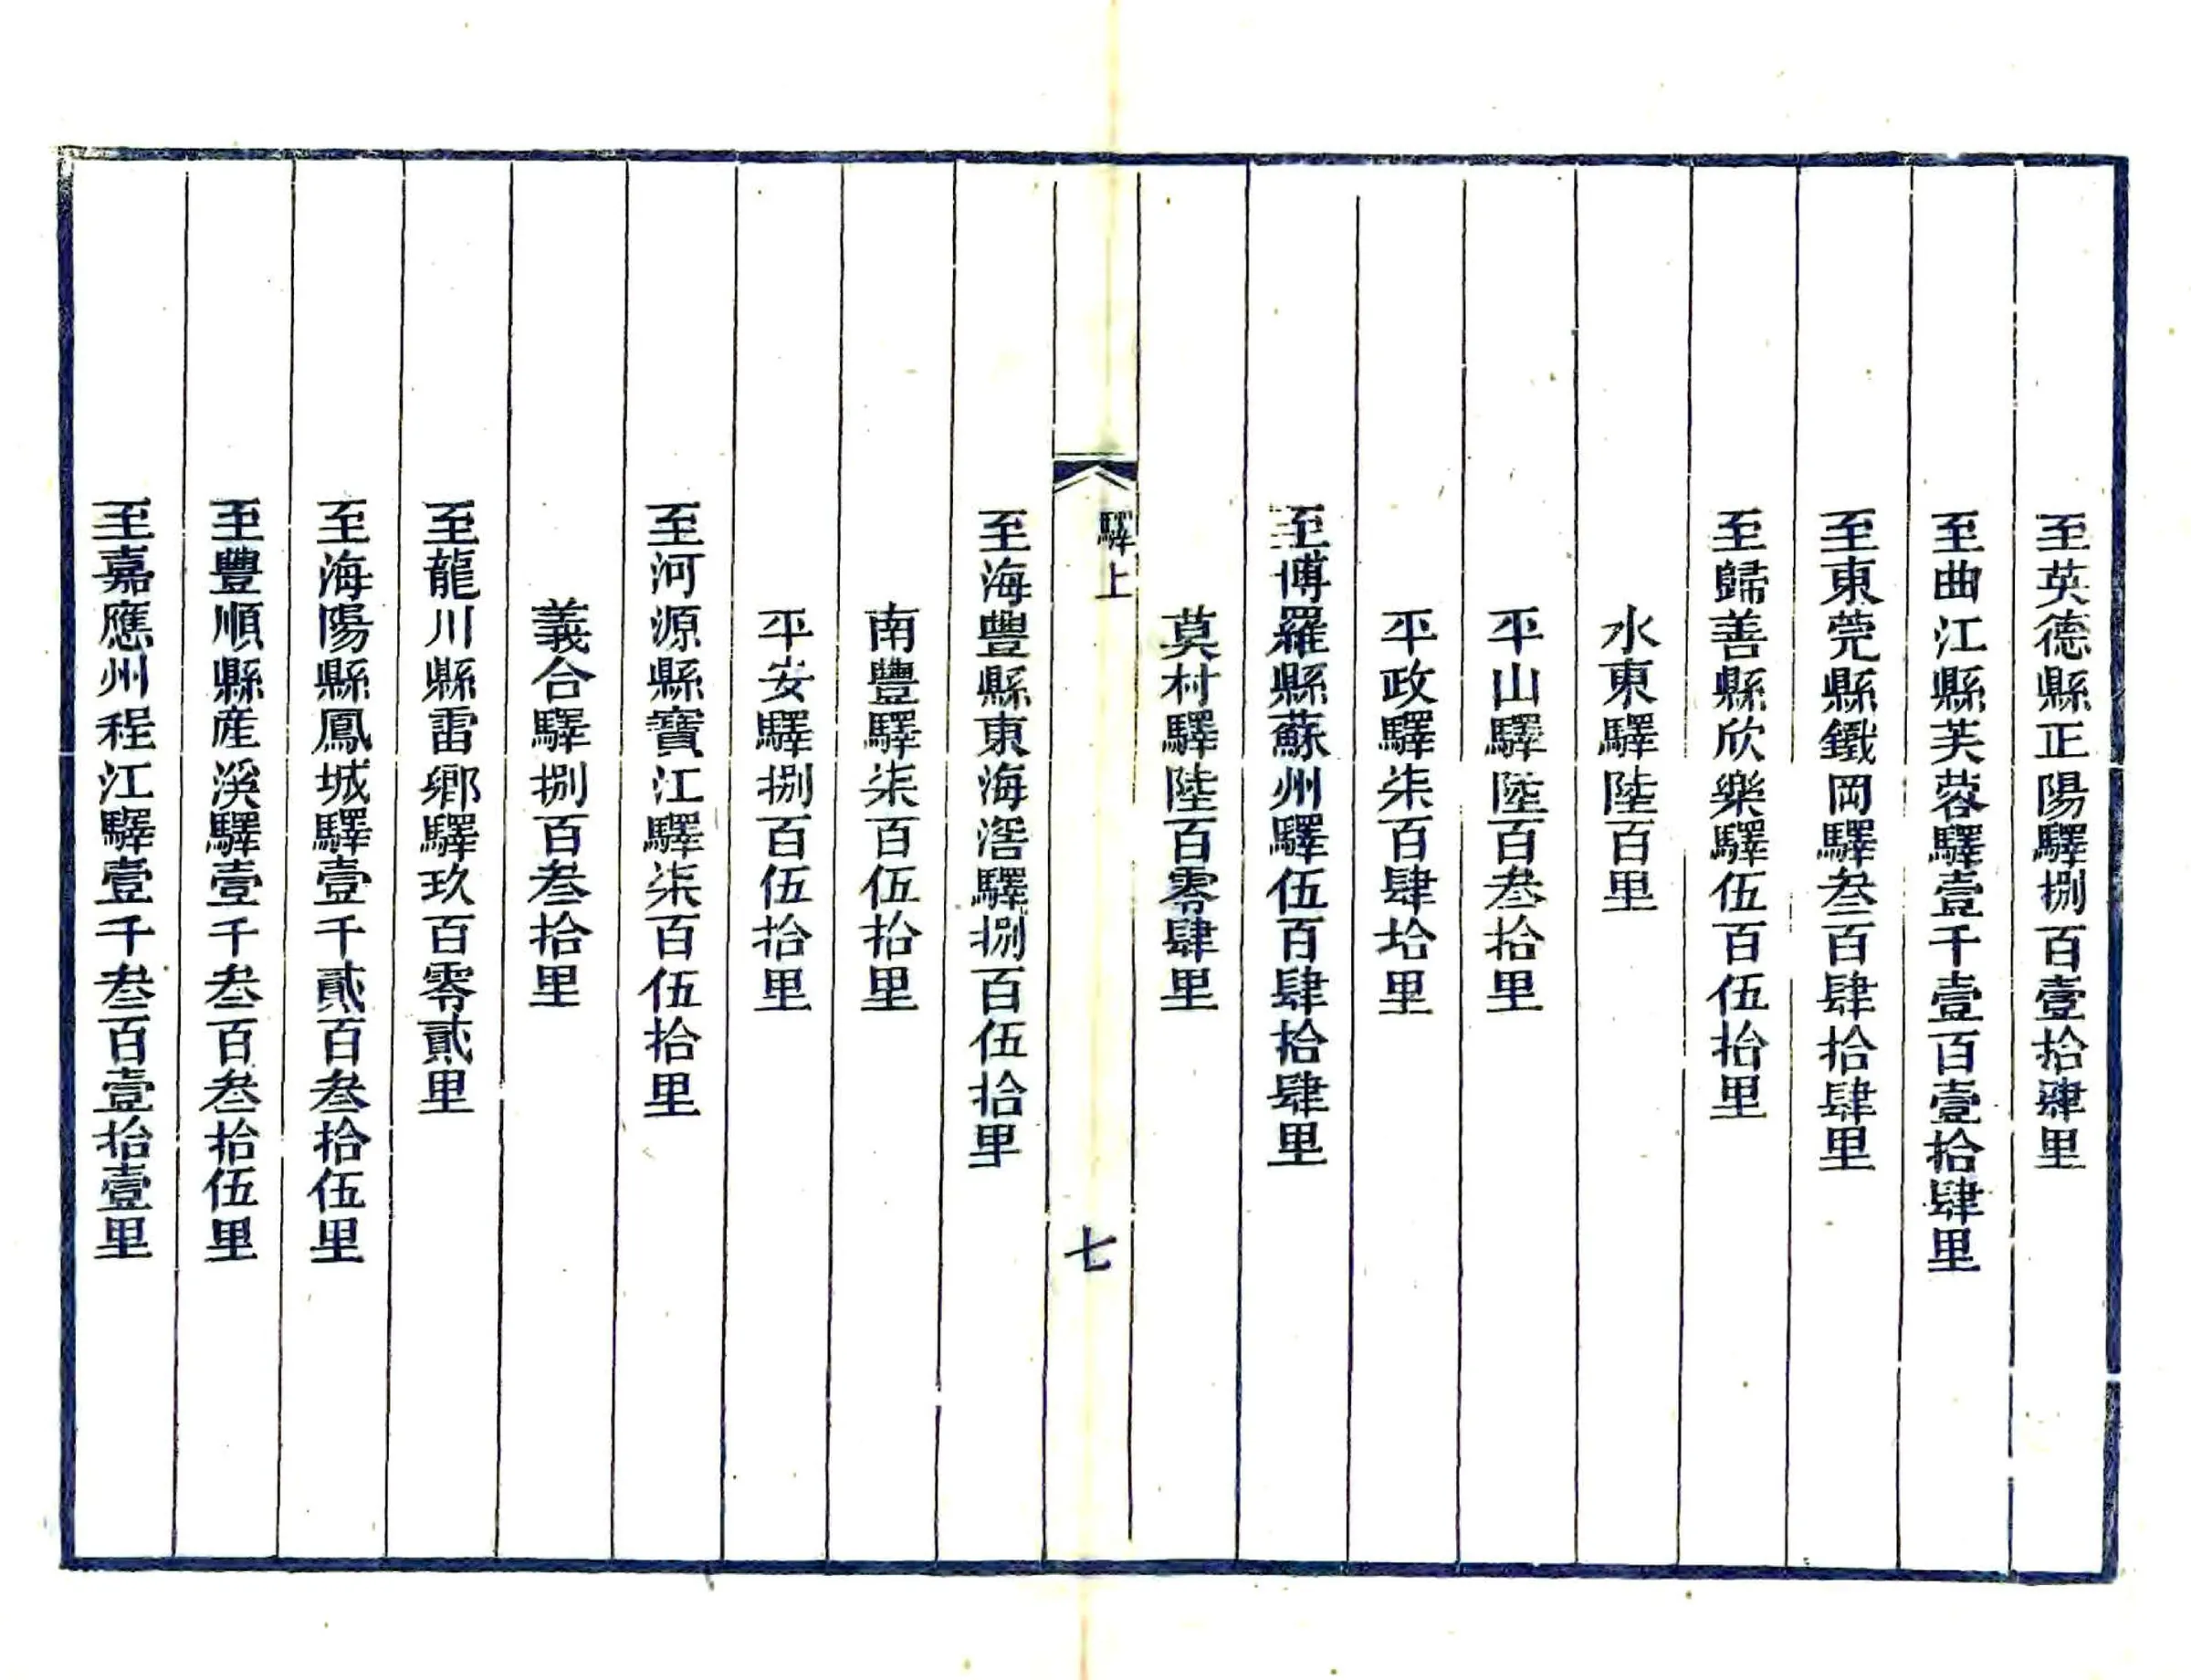 至英德縣正陽驛捌百壹拾肆里
至曲江縣芙蓉驛壹千壹百壹拾肆里
至東莞縣鐵岡驛叁百肆拾肆里
至歸善縣欣樂驛伍百伍拾里
水東驛陸百里
平山驛陸百叁拾里
平政驛柒百肆拾里
至博羅縣蘇州驛伍百肆拾肆里
莫村驛陸百零肆里
驛上
七
至海豐縣東海滘驛捌百伍拾里
南豐驛柒百伍拾里
平安驛捌百伍拾里
至河源縣寶江驛柒百伍拾里
義合驛捌百叁拾里
至龍川縣雷鄉驛玖百零貳里
至海陽縣鳳城驛壹千貳百叁拾伍里
至豐順縣產溪驛壹千叁百叁拾伍里
至嘉應州程江驛壹千叁百壹拾壹里